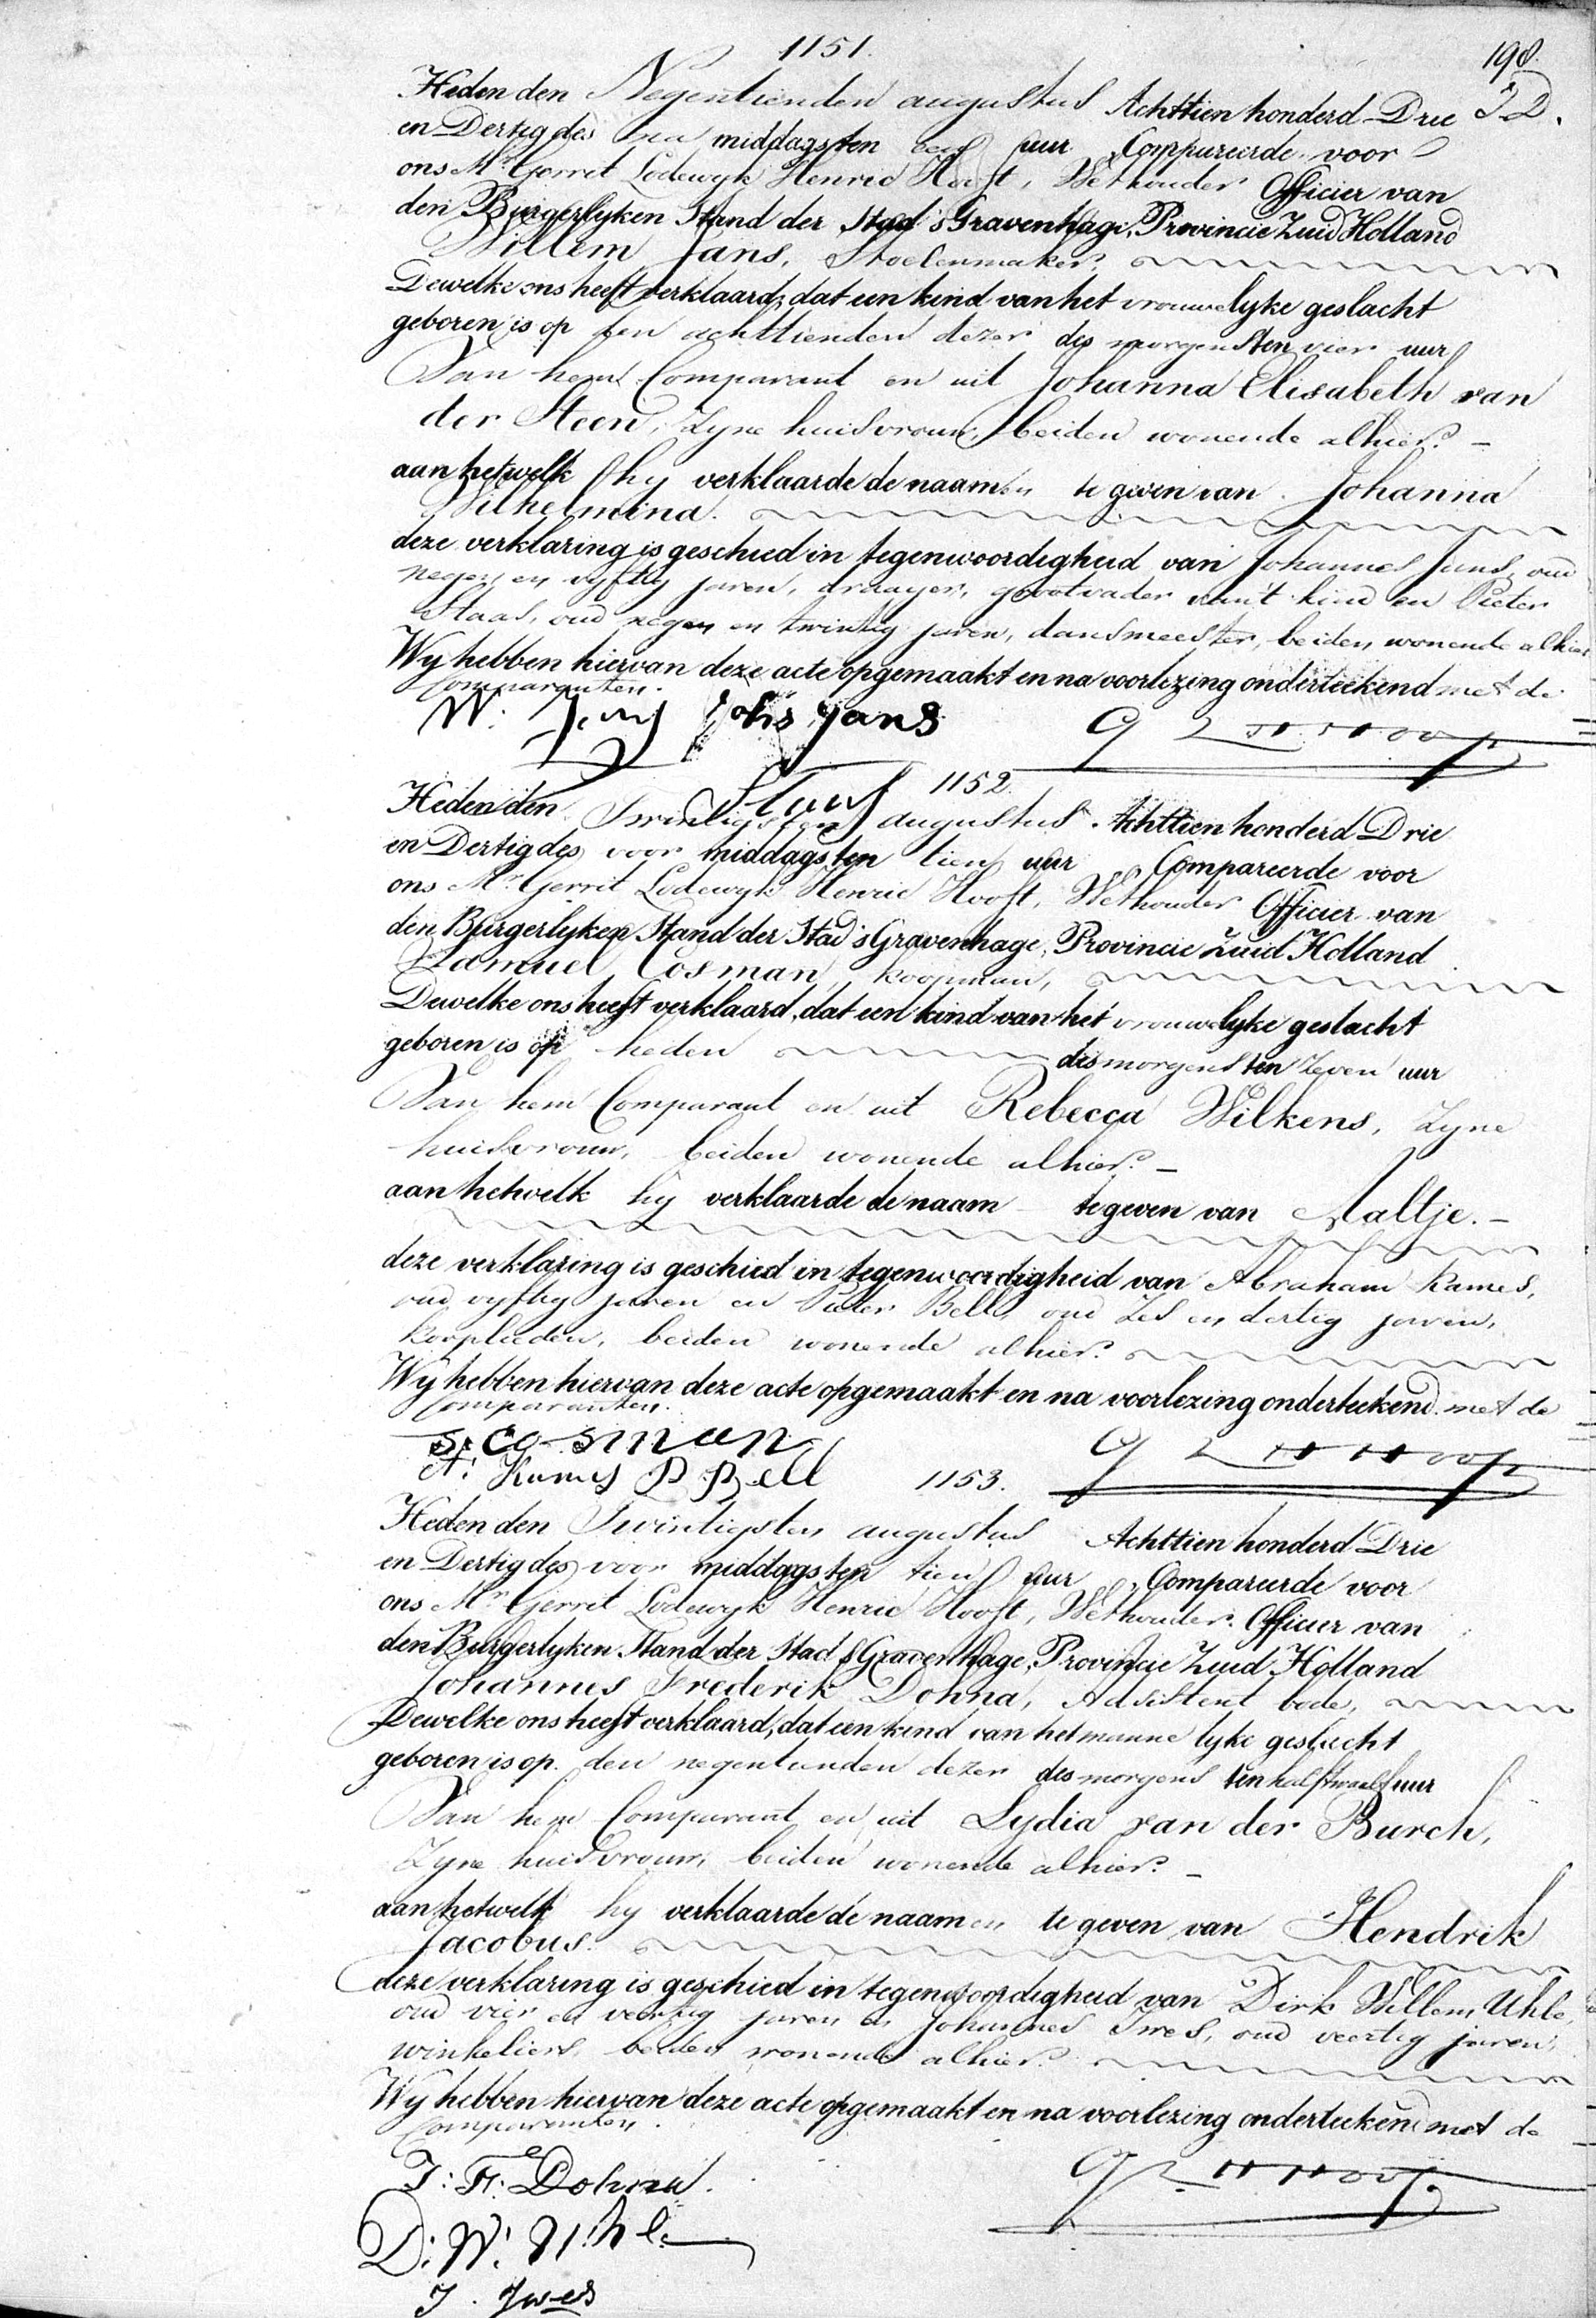 1151.
198.
Heden den Negentienden augustus Achttien honderd Drie
en Dertig des na middags ten een uur Compareerde voor
ons Mr. Gerrit Lodewyk Henric Hooft, Wethouder Officier van
den Burgerlyken Stand der Stad 's Gravenhage, Provincie Zuid Holland
Willem Jans, Stoelenmaker,
Dewelke ons heeft verklaard, dat een kind van het vrouwelyke geslacht
geboren is op den achttienden dezer des morgens ten vier uur
Van hem Comparant en uit Johanna Elisabeth van
der Steen, Zyne huisvrouw, beiden wonende alhier. –
aan hetwelk hy verklaarde de naamen te geven van Johanna
Wilhelmina.
deze verklaring is geschied in tegenwoordigheid van Johannes Jans, oud
negen en vyftig jaren, draayer, grootvader van 't kind en Pieter
Staas, oud negen en twintig jaren, dansmeester, beiden wonende alhier
Wy hebben hiervan deze acte opgemaakt en na voorlezing onderteekend met de
Comparanten.
W. Jans Johs Jans
G L H Hooft
1152.
Heden den Twintigsten augustus Achttien honderd Drie
en Dertig des voor middags ten tien uur Compareerde voor
ons Mr. Gerrit Lodewyk Henric Hooft, Wethouder Officier van
den Burgerlyken Stand der Stad 's Gravenhage, Provincie Zuid Holland
Samuel Cosman, koopman,
Dewelke ons heeft verklaard, dat een kind van het vrouwelyke geslacht
geboren is op heden des morgens ten Zeven uur
Van hem Comparant en uit Rebecca Wilkens, Zyne
huisvrouw, beiden wonende alhier. –
aan hetwelk hy verklaarde de naam te geven van Aaltje. –
deze verklaring is geschied in tegenwoordigheid van Abraham Kames,
oud vyftig jaren en Pieter Bell, oud Zes en dertig jaren,
kooplieden, beiden wonende alhier.
Wy hebben hiervan deze acte opgemaakt en na voorlezing onderteekend met de
Comparanten.
S: Cosman
A: Kames P Bell
G L H Hooft
1153.
Heden den Twintigsten augustus Achttien honderd Drie
en Dertig des voor middags ten tien uur Compareerde voor
ons Mr. Gerrit Lodewyk Henric Hooft, Wethouder Officier van
den Burgerlyken Stand der Stad 's Gravenhage, Provincie Zuid Holland
Johannes Frederik Dohna, Adsistent bode,
Dewelke ons heeft verklaard, dat een kind van het mannelyke geslacht
geboren is op den negentienden dezer des morgens ten half twaalf uur
Van hem Comparant en uit Lydia van der Burch,
Zyne huisvrouw, beiden wonende alhier. –
aan hetwelk hy verklaarde de naamen te geven van Hendrik
Jacobus.
deze verklaring is geschied in tegenwoordigheid van Dirk Willem Uhle,
oud vier en veertig jaren en Johannes Ives, oud veertig jaren,
winkeliers, beiden wonende alhier.
Wy hebben hiervan deze acte opgemaakt en na voorlezing onderteekend met de
Comparanten.
J: F: Dohna
G L H Hooft
D: W: Uhle
J. Ives